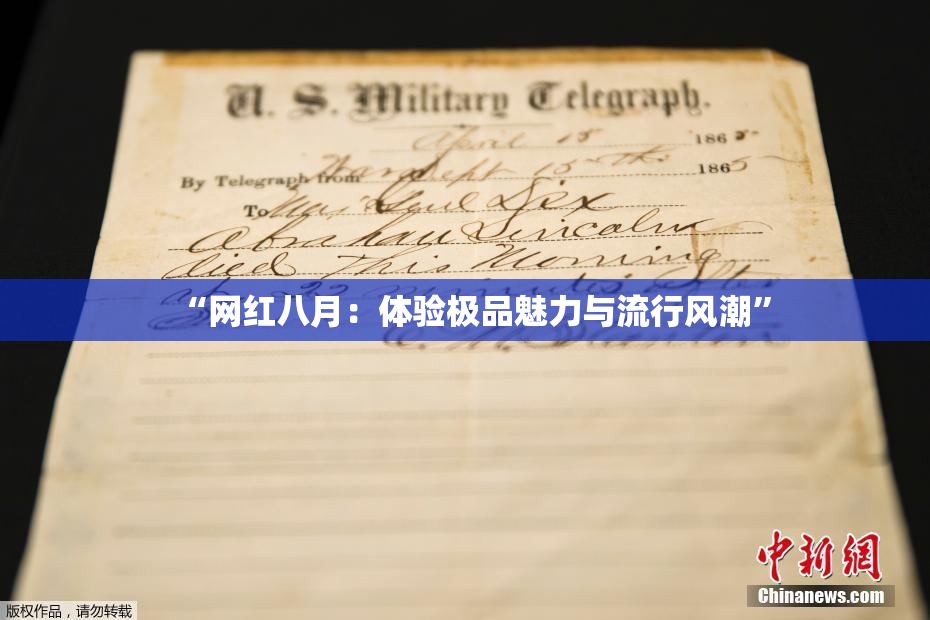 U. S. Military Telegraph.
April 15 1865
By Telegraph from War Dept 15th 1865
To Maj Genl Dix
Abraham Lincoln
died This Morning
at 22 minutes after
“网红八月：体验极品魅力与流行风潮”
E. M. Stanton
中新网
Chinanews.com
版权作品，请勿转载